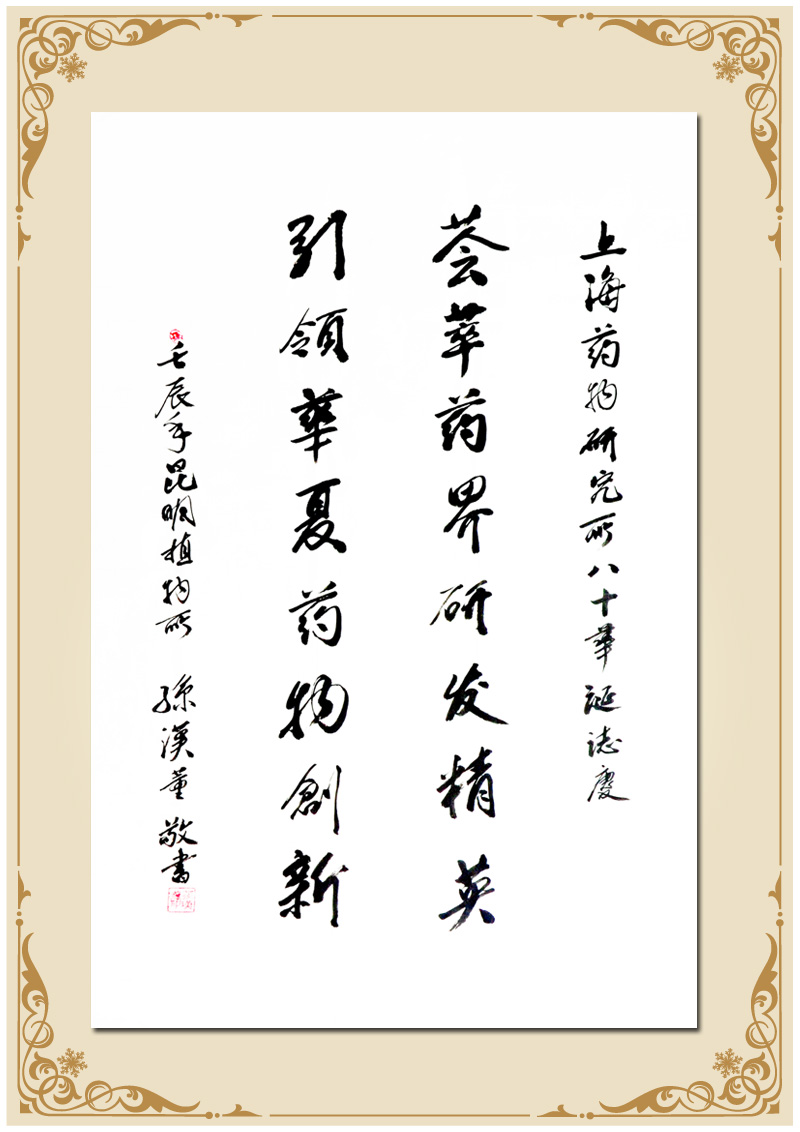 上海药物研究所八十华诞誌慶
荟萃药界研发精英
引领華夏药物創新
壬辰年昆明植物所 孫漢董 敬書